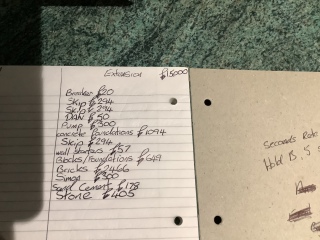 Extension £15000
Breaker £20
Skip £294
Skip £294
DAN £50
Pump £300
concrete foundations £1094
Skip £294
wall starters £57
Blocks/foundations £649
Bricks £2466
Simon £300
Sand Cement £178
Stone £405
Seconds Rate
Hold B. S